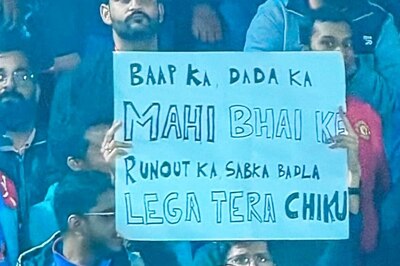 BAAP KA, DADA KA
MAHI BHAI KE
RUNOUT KA SABKA BADLA
LEGA TERA CHIKU